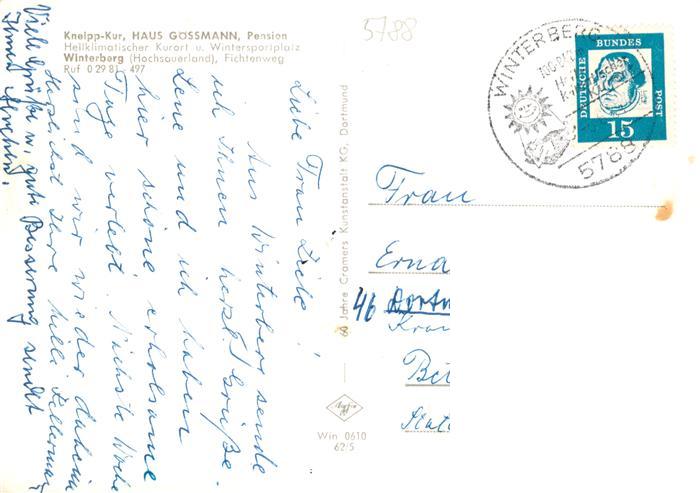 Kneipp-Kur, HAUS GÖSSMANN, Pension
Heilklimatischer Kurort u. Wintersportplatz
Winterberg (Hochsauerland), Fichtenweg
Ruf 0 29 81 - 497
5788
WINTERBERG
5788
DEUTSCHE BUNDES POST
15
Liebe Frau Liebe!
Aus Winterberg sende
ich Ihnen herzl. Grüße.
Lene und ich haben
hier schöne erholsame
Tage verlebt. Nächste Woche
sind wir wieder daheim
Herzlichst Ihre
Viele Grüße u. gute Besserung sendet
Ihnen
60 Jahre Cramers Kunstanstalt KG, Dortmund
Frau
Erna
46 Dortm
Win 0610
62/5